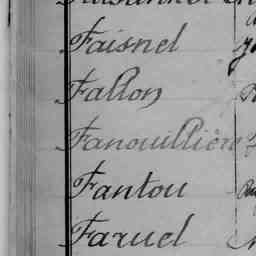 Faisnel
Fallon
Fanouillière
Fantou
Faruel